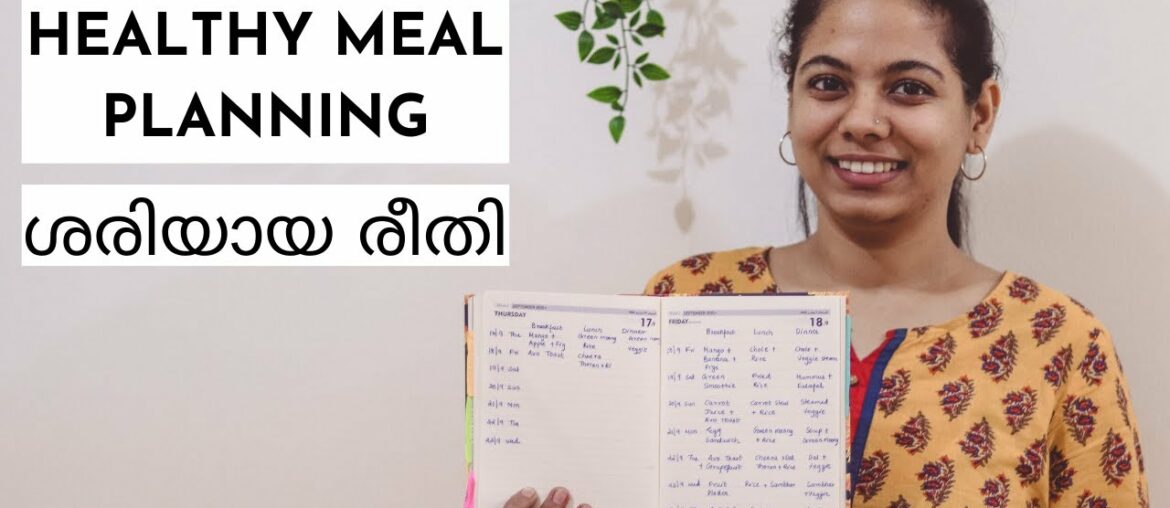 HEALTHY MEAL
PLANNING
ശരിയായ രീതി
THURSDAY
17
Breakfast Lunch Dinner
Thu Mango + Green moong
Apple + Fig Rice Veggie
18/9 Fri Avo Toast Cheera
19/9 Sat
20/9 Sun
21/9 Mon
22/9 Tue
Wed
FRIDAY
18
Breakfast Lunch Dinner
Fri Mango + Chole + Chole +
Banana + Rice Veggie
19/9 Sat Green Fried Hummus +
Smoothie Rice
20/9 Sun Carrot Carrot Steamed
Juice + + Rice Veggie
Avo Toast
21/9 Mon Green moong Soup +
Sandwich + Rice Green moong
22/9 Tue Avo Toast Dal +
+ Grapefruit + Rice Veggie
Wed Fruit Rice + Sambhar Sambhar
+ Veggie